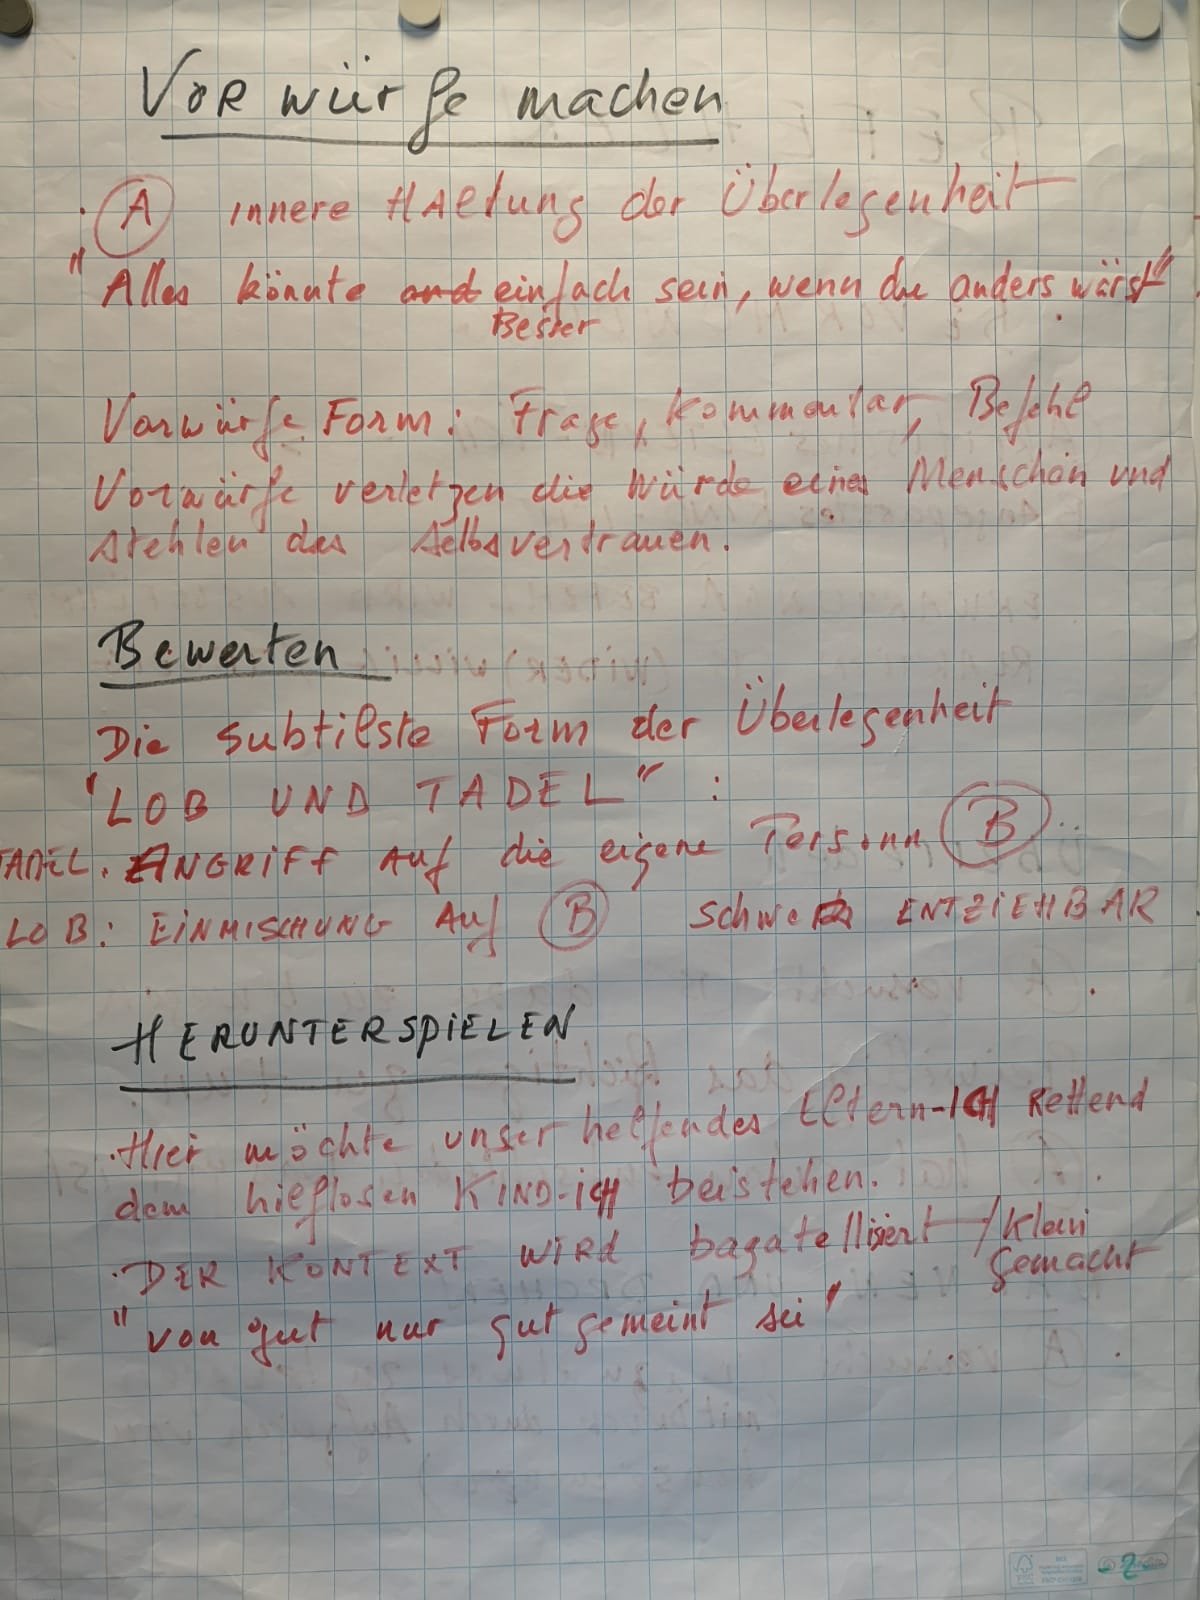 Vorwürfe machen
· A innere Haltung der Überlegenheit
"Alles könnte and einfach sein, wenn du anders wärst"
Besser
Vorwürfe Form: Frage, Kommentar, Befehl
Vorwürfe verletzen die Würde eines Menschen und
stehlen das Selbsvertrauen.
Bewerten
Die subtilste Form der Überlegenheit
"LOB UND TADEL" :
TADEL. ANGRIFF AUF die eigene Person B
LOB: EINMISCHUNG AUF B schwer ENTZIEHBAR
HERUNTERSPIELEN
· Hier möchte unser helfendes Eltern-ICH Rettend
dem hieflosen KIND-ICH beistehen.
· DER KONTEXT WIRD bagatellisiert / Klein
Gemacht
"von gut nur gut gemeint sei"
2